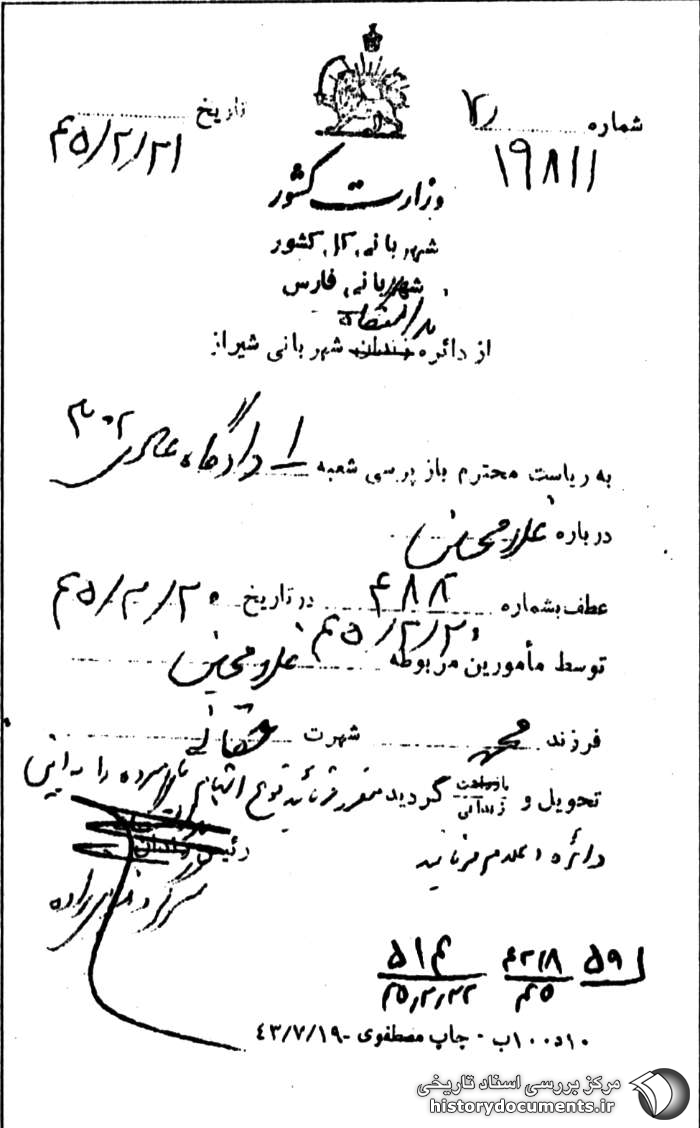 شماره ۲/
۱۹۸۱۱
تاریخ
۴۵/۲/۲۱
وزارت کشور
شهربانی کل کشور
شهربانی فارس
دارالتأدیب
از دائره زندان شهربانی شیراز
به ریاست محترم بازپرسی شعبه ۱ دادگاه
درباره غلامحسین
عطف بشماره ۴۸۸ در تاریخ ۴۵/۲/۲۰
توسط مأمورین مربوطه ۴۵/۲/۲۰ غلامحسین
فرزند محمد شهرت
تحویل و بازداشت زندانی گردید مقرر فرمائید نوع اتهام نامبرده را به این
دائره اعلام فرمائید
رئیس زندان
سرگرد
۵۹ ۴۲۱۸ ۵۱۴
۴۵ ۴۵/۲/۲۲
۱۰د۱۰۰ب - چاپ مصطفوی - ۴۳/۷/۱۹
مرکز بررسی اسناد تاریخی
historydocuments.ir